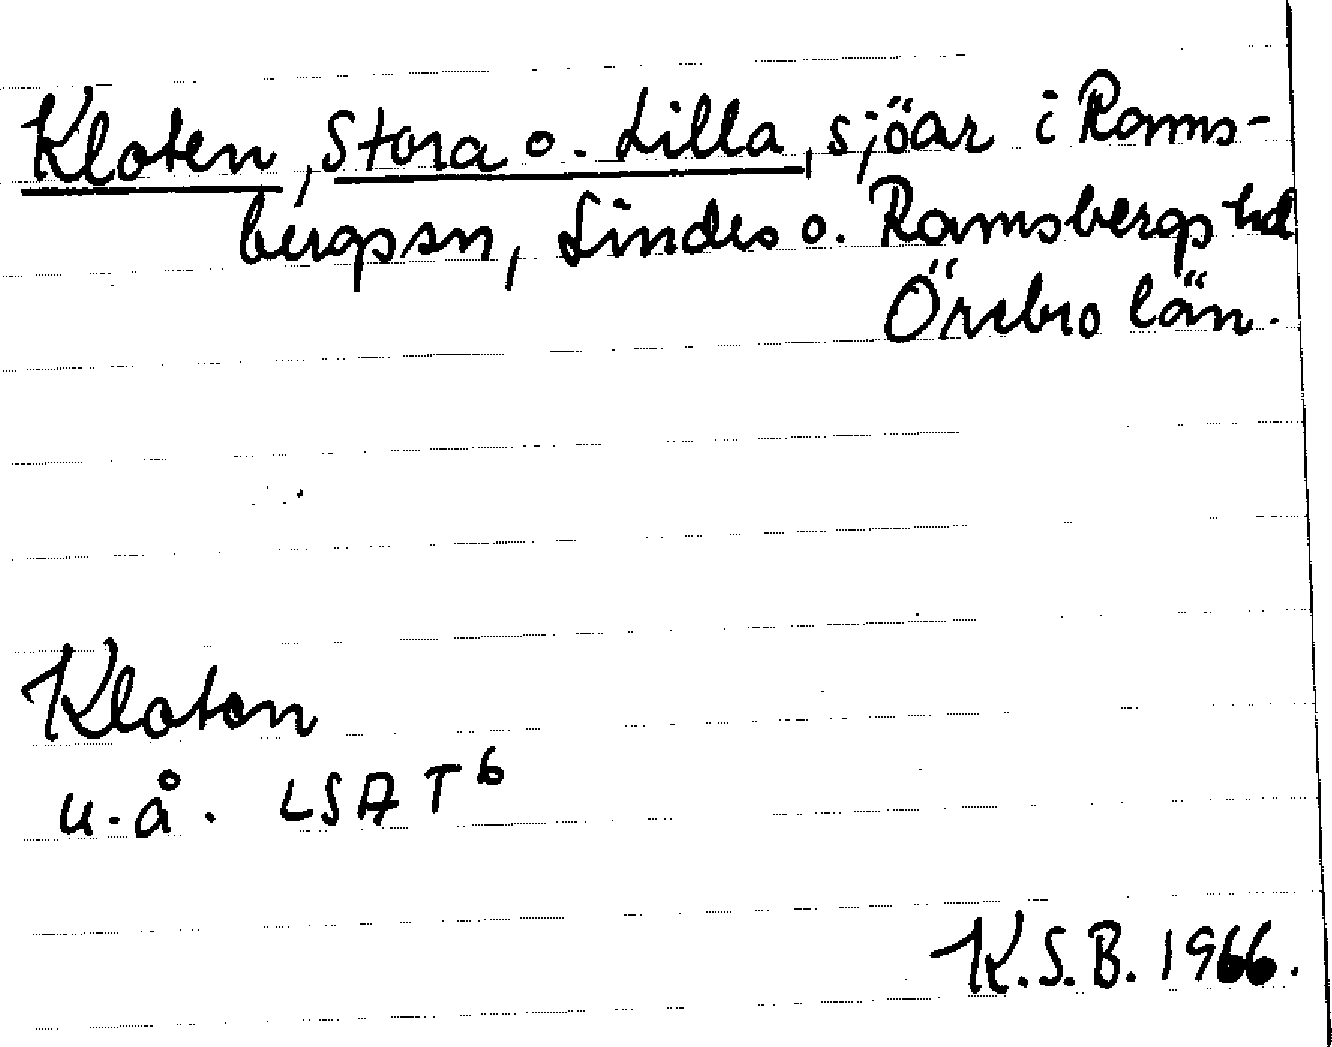 Kloten, Stora o. Lilla, sjöar i Rams-
bergssn, Lindes o. Ramsbergs hd
Örebro län.
Kloten
u.å. LSA T6
K.S.B. 1966.